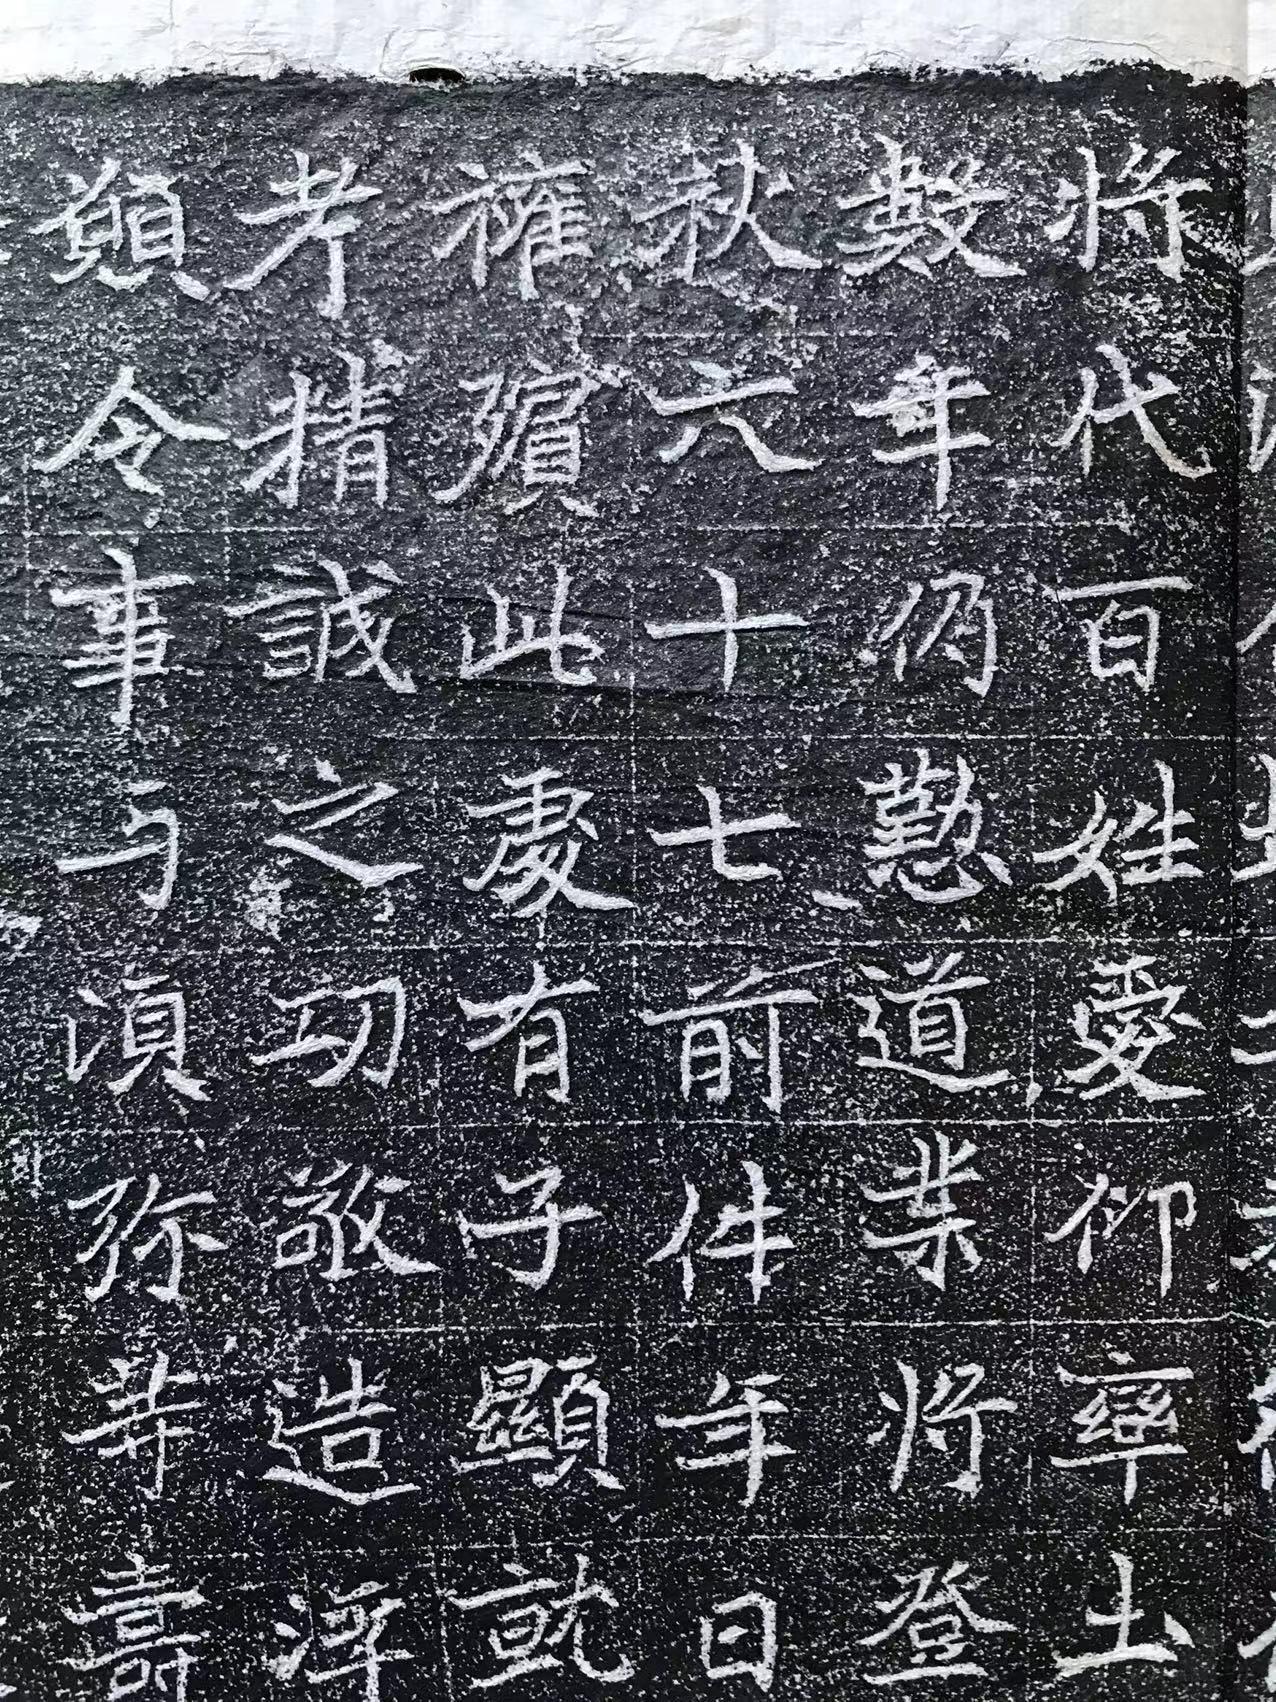 將代百姓愛仰率土
數年仍懃道業將登
秋六十七前件年日
權殯此處有子顯就
考精誠之功敬造浮
願令事与湏弥等壽